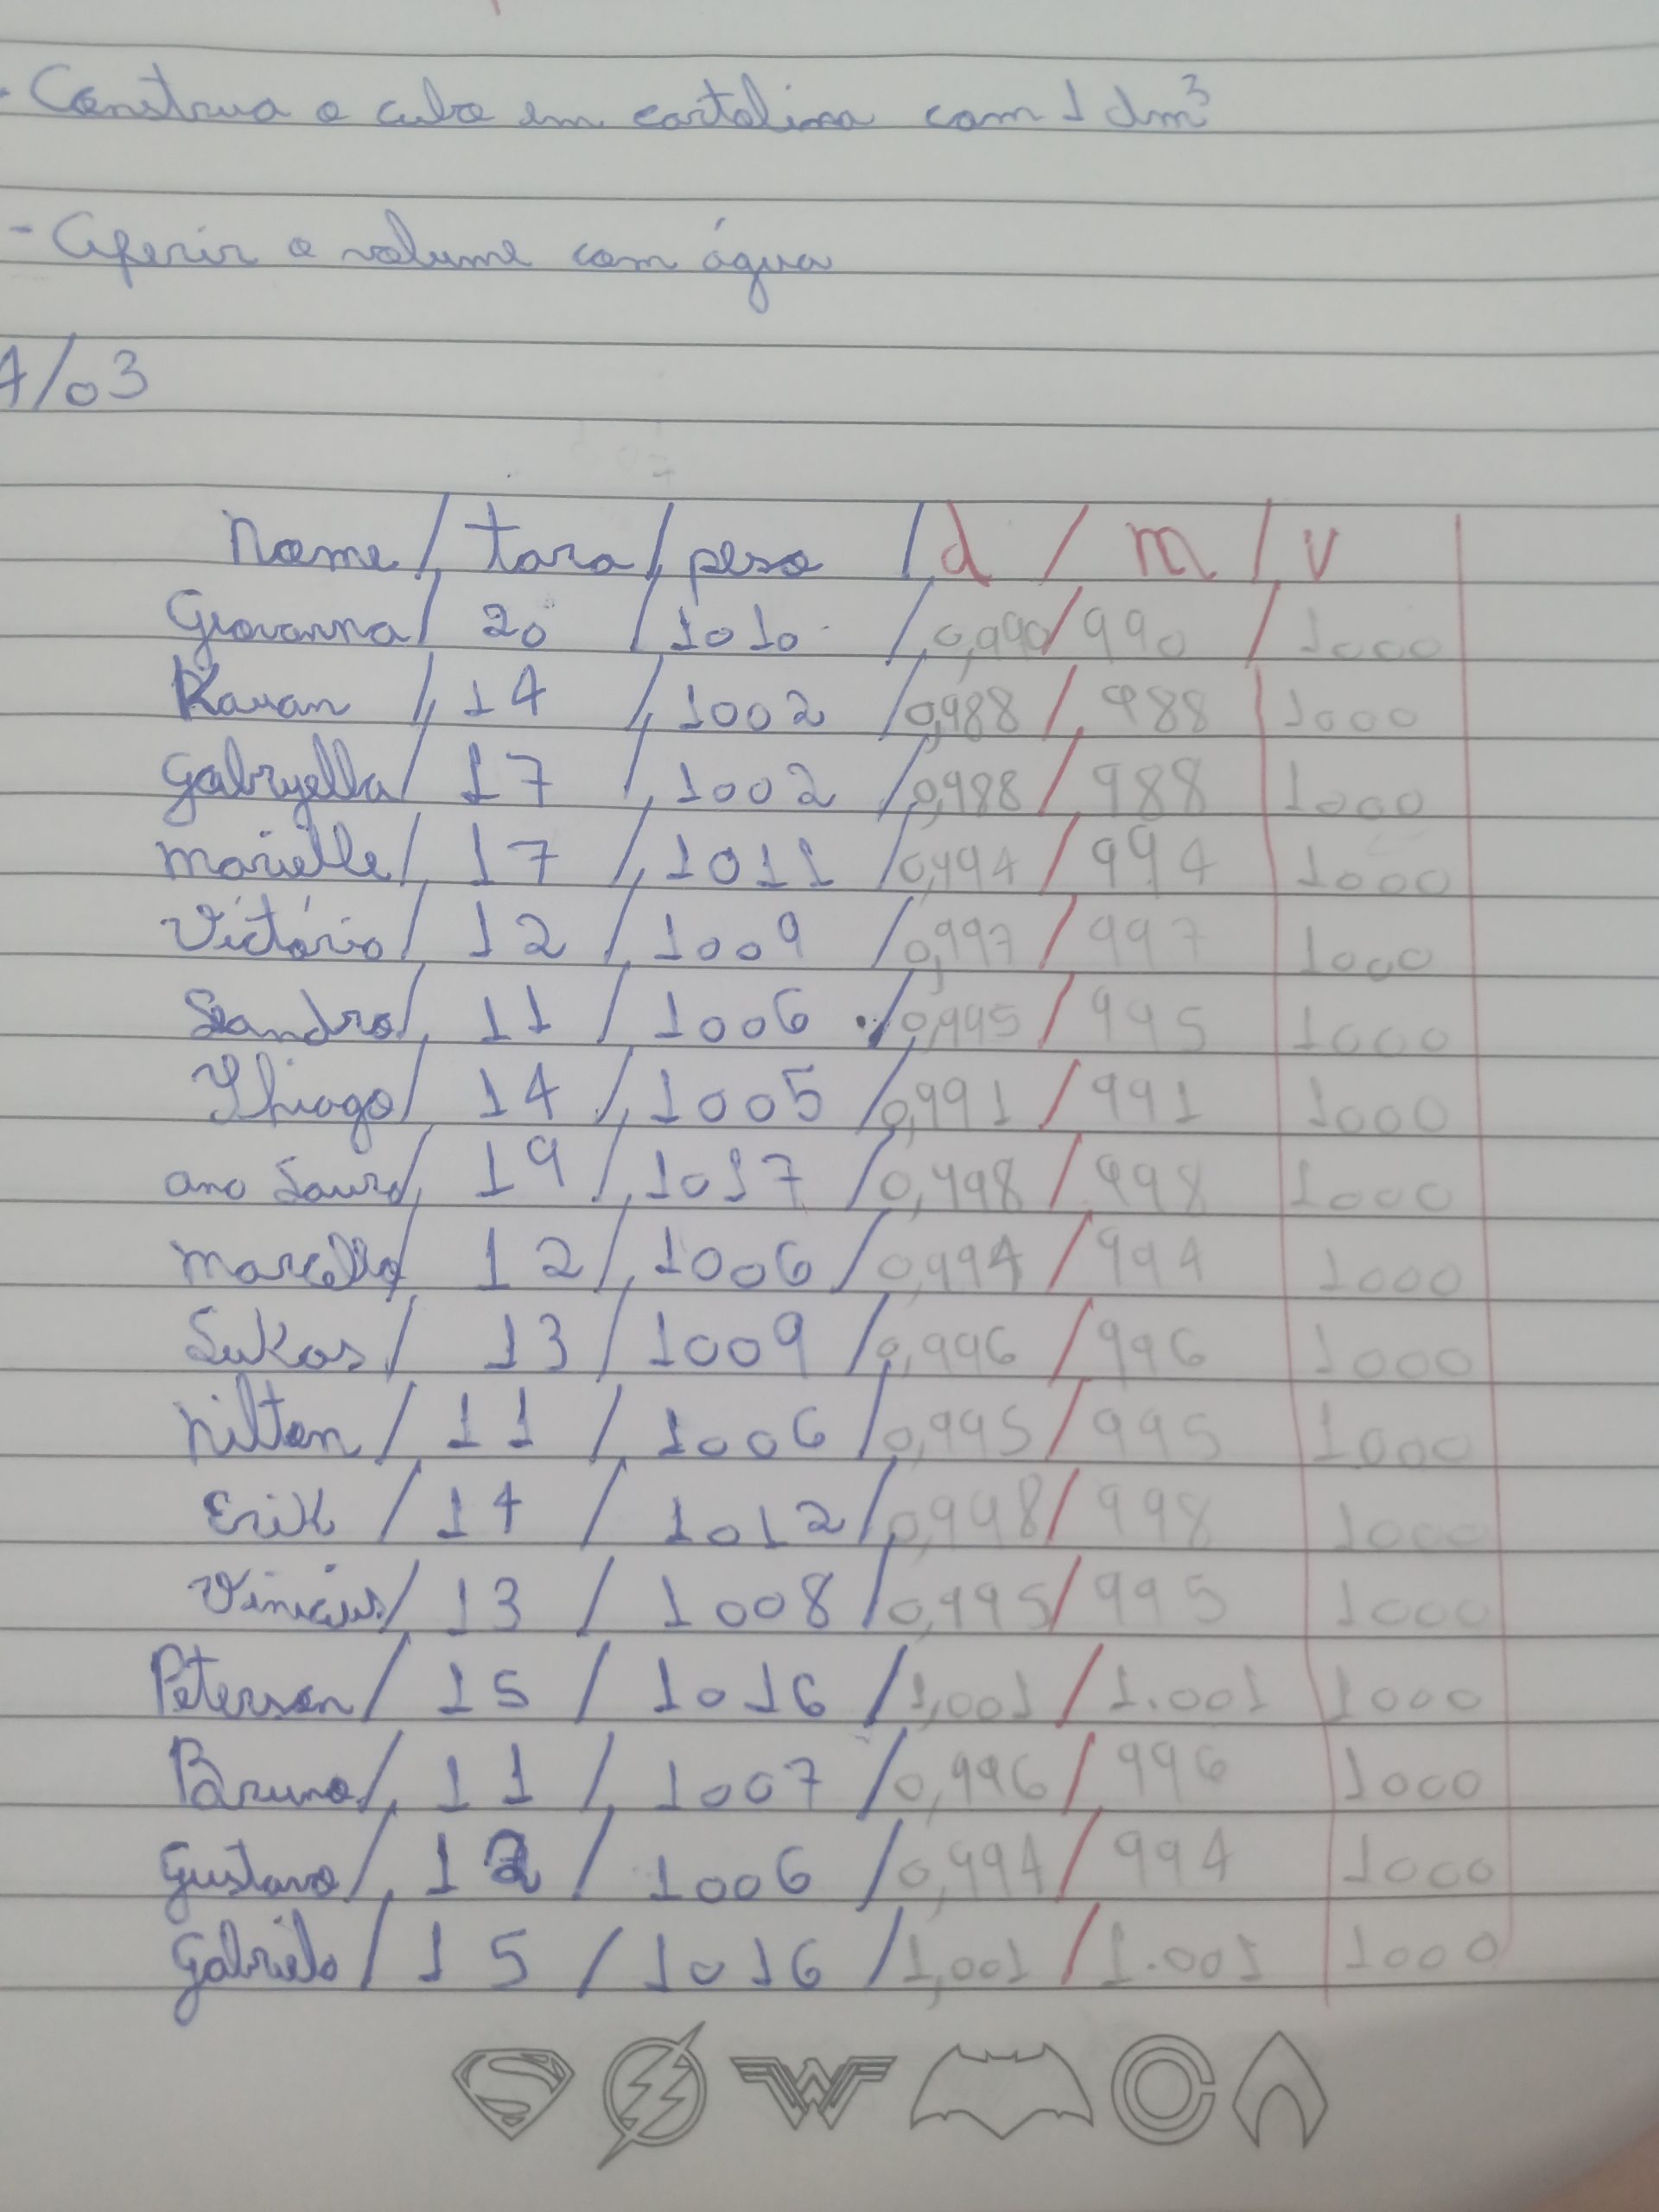 - Construa o cubo em cartolina com 1 dm³
- Aferir o volume com água
/03
Nome / tara / peso / d / m / v
Giovanna / 20 / 1010 / 0,990 / 990 / 1000
Kauan / 14 / 1002 / 0,988 / 988 / 1000
Gabryella / 17 / 1002 / 0,988 / 988 / 1000
Marielle / 17 / 1011 / 0,994 / 994 / 1000
Victório / 12 / 1009 / 0,997 / 997 / 1000
Leandro / 11 / 1006 / 0,995 / 995 / 1000
Thiago / 14 / 1005 / 0,991 / 991 / 1000
Ana Laura / 19 / 1017 / 0,998 / 998 / 1000
Marcella / 12 / 1006 / 0,994 / 994 / 1000
Lukas / 13 / 1009 / 0,996 / 996 / 1000
Nilton / 11 / 1006 / 0,995 / 995 / 1000
Erik / 14 / 1012 / 0,998 / 998 / 1000
Vinicius / 13 / 1008 / 0,995 / 995 / 1000
Peterson / 15 / 1016 / 1,001 / 1.001 1000
Bruno / 11 / 1007 / 0,996 / 996 1000
Gustavo / 12 / 1006 / 0,994 / 994 1000
Gabriela / 15 / 1016 / 1,001 / 1.001 1000